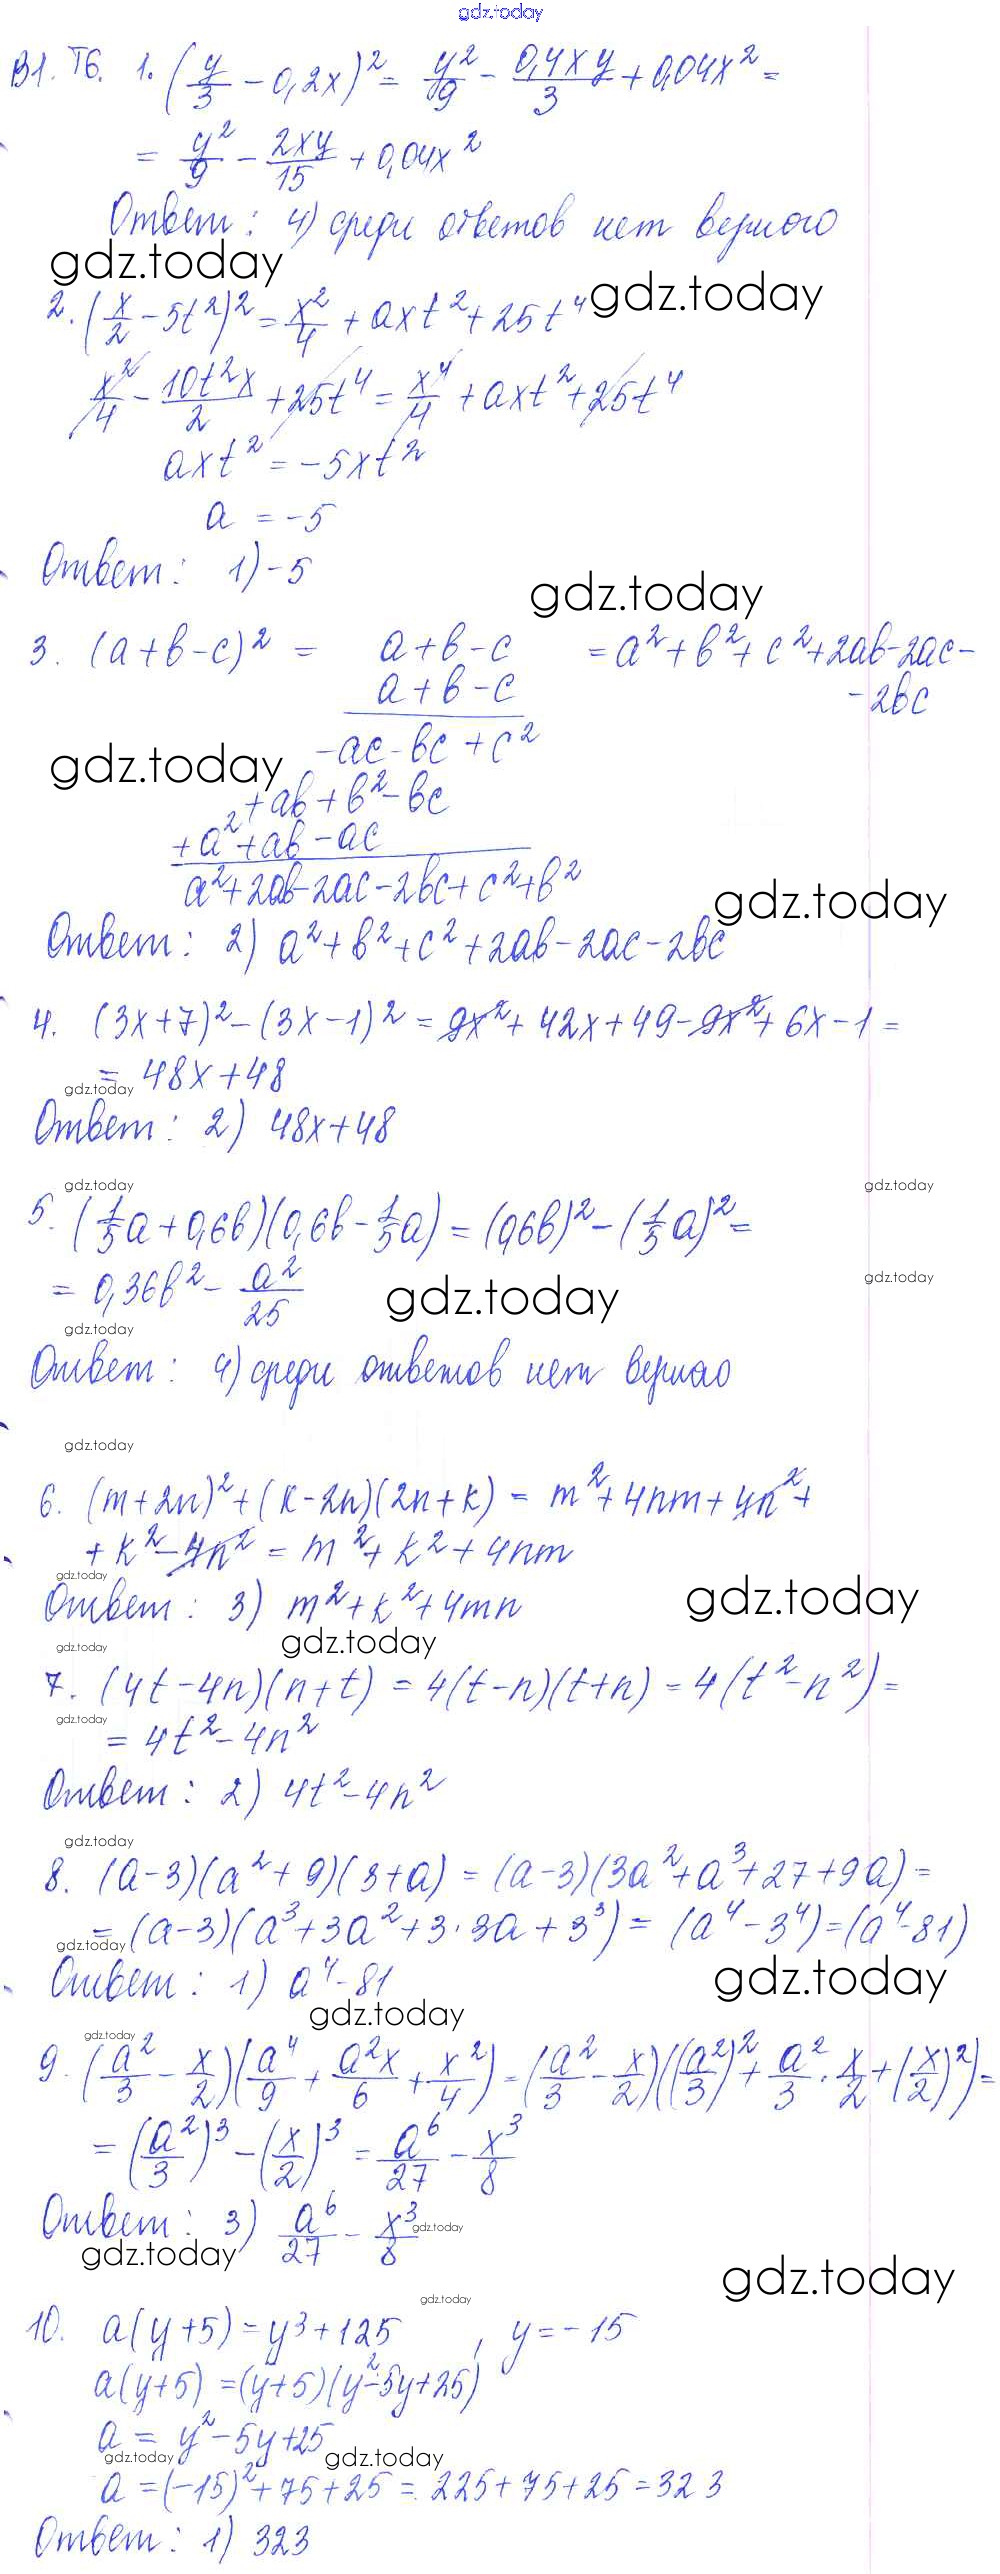 gdz.today
В1. Т6. 1. (y/3 - 0,2x)² = y²/9 - 0,4xy/3 + 0,04x² =
= y²/9 - 2xy/15 + 0,04x²
Ответ: 4) среди ответов нет верного
gdz.today
gdz.today
2. (x/2 - 5t²)² = x²/4 + axt² + 25t⁴
x²/4 - 10t²x/2 + 25t⁴ = x⁴/4 + axt² + 25t⁴
axt² = -5xt²
a = -5
Ответ: 1) -5
gdz.today
3. (a+b-c)² = a+b-c = a²+b²+c²+2ab-2ac-
a+b-c -2bc
-ac-bc+c²
gdz.today
+ab+b²-bc
+a²+ab-ac
a²+2ab-2ac-2bc+c²+b²
gdz.today
Ответ: 2) a²+b²+c²+2ab-2ac-2bc
4. (3x+7)²-(3x-1)² = 9x²+42x+49-9x²+6x-1 =
= 48x+48
gdz.today
Ответ: 2) 48x+48
gdz.today gdz.today
5. (1/5a+0,6b)(0,6b-1/5a) = (0,6b)²-(1/5a)² =
= 0,36b² - a²/25
gdz.today
gdz.today
gdz.today
Ответ: 4) среди ответов нет верного
gdz.today
6. (m+2n)²+(k-2n)(2n+k) = m²+4nm+4n²+
+k²-4n² = m²+k²+4nm
gdz.today
Ответ: 3) m²+k²+4mn
gdz.today
gdz.today
gdz.today
7. (4t-4n)(n+t) = 4(t-n)(t+n) = 4(t²-n²) =
gdz.today
= 4t²-4n²
Ответ: 2) 4t²-4n²
gdz.today
8. (a-3)(a²+9)(3+a) = (a-3)(3a²+a³+27+9a) =
= (a-3)(a³+3a²+3·3a+3³) = (a⁴-3⁴) = (a⁴-81)
gdz.today
Ответ: 1) a⁴-81
gdz.today
gdz.today
gdz.today
9. (a²/3 - x/2)(a⁴/9 + a²x/6 + x²/4) = (a²/3 - x/2)((a²/3)² + a²/3 · x/2 + (x/2)²) =
= (a²/3)³ - (x/2)³ = a⁶/27 - x³/8
Ответ: 3) a⁶/27 - x³/8
gdz.today
gdz.today
gdz.today
gdz.today
10. a(y+5) = y³+125, y = -15
a(y+5) = (y+5)(y²-5y+25)
a = y²-5y+25
gdz.today gdz.today
a = (-15)²+75+25 = 225+75+25 = 323
Ответ: 1) 323